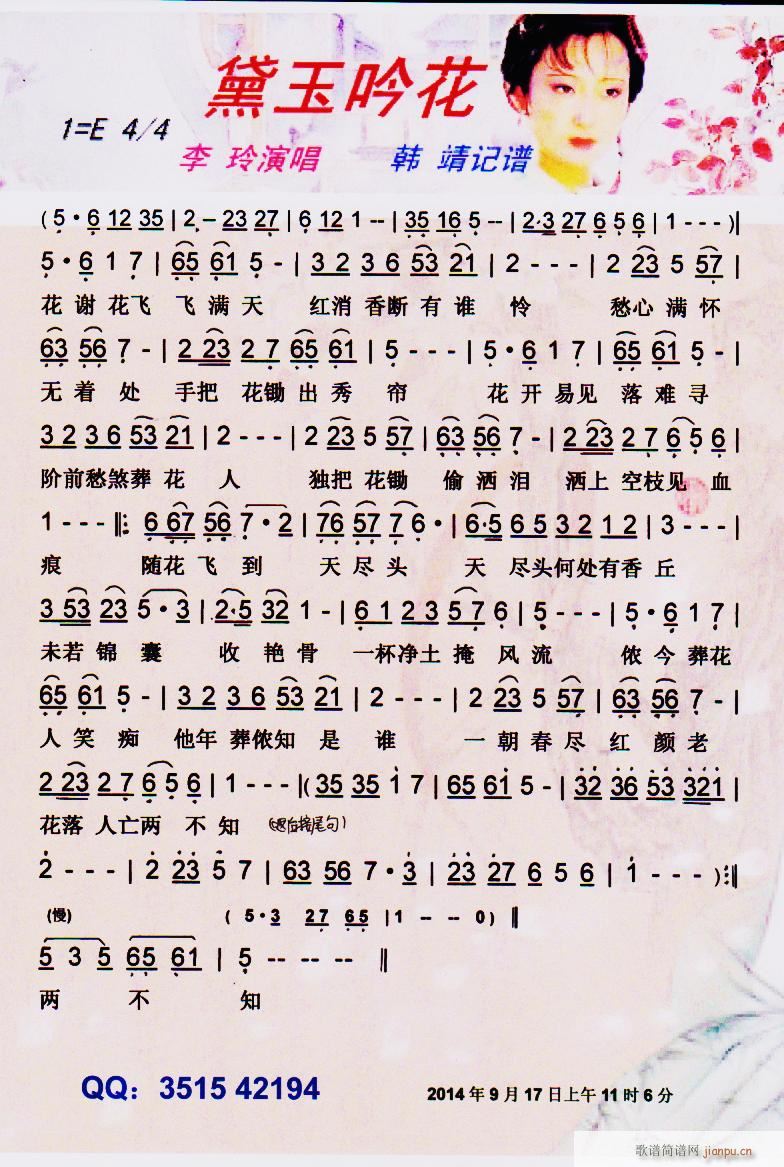 黛玉吟花
1=E 4/4
李 玲演唱 韩 靖记谱
(5·6 12 35 | 2·– 23 27 | 6 12 1 -- | 35 16 5 -- | 2·3 27 6 5 6 | 1 - - - )|
5·6 1 7 | 65 61 5 - | 3 2 3 6 53 21 | 2 - - - | 2 23 5 57 |
花谢花飞 飞满天 红消香断有谁 怜 愁心满怀
63 56 7 - | 2 23 2 7 65 61 | 5 - - - | 5·6 1 7 | 65 61 5 - |
无着处 手把 花锄出秀 帘 花开易见 落难寻
3 2 3 6 53 21 | 2 - - - | 2 23 5 57 | 63 56 7 - | 2 23 2 7 6 5 6 |
阶前愁煞葬花 人 独把花锄 偷洒泪 洒上空枝见血
1 - - - |: 6 67 56 7·2 | 76 57 7 6· | 6·5 6 5 3 2 1 2 | 3 - - - |
痕 随花飞到 天尽头 天 尽头何处有香丘
3 53 23 5·3 | 2·5 32 1 - | 6 1 2 3 5 7 6 | 5 - - - | 5·6 1 7 |
未若锦囊 收艳骨 一杯净土掩 风流 侬今葬花
65 61 5 - | 3 2 3 6 53 21 | 2 - - - | 2 23 5 57 | 63 56 7 - |
人笑痴 他年葬侬知是谁 一朝春尽 红颜老
2 23 2 7 6 5 6 | 1 - - - |( 35 35 1 7 | 65 61 5 - | 32 36 53 321 |
花落人亡两 不知
2 - - - | 2 23 5 7 | 63 56 7·3 | 23 27 6 5 6 | 1 - - - ):||
(慢) ( 5·3 27 65 | 1 -- -- 0) ||
5 3 5 65 61 | 5 -- -- -- ||
两 不 知
QQ：3515 42194
2014年9月17日上午11时6分
歌谱简谱网
jianpu.cn